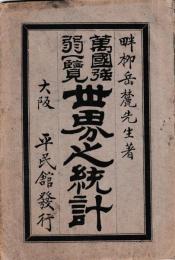 畔柳岳麓先生著
萬國強
弱一覧
世界之統計
大阪　平民舘發行